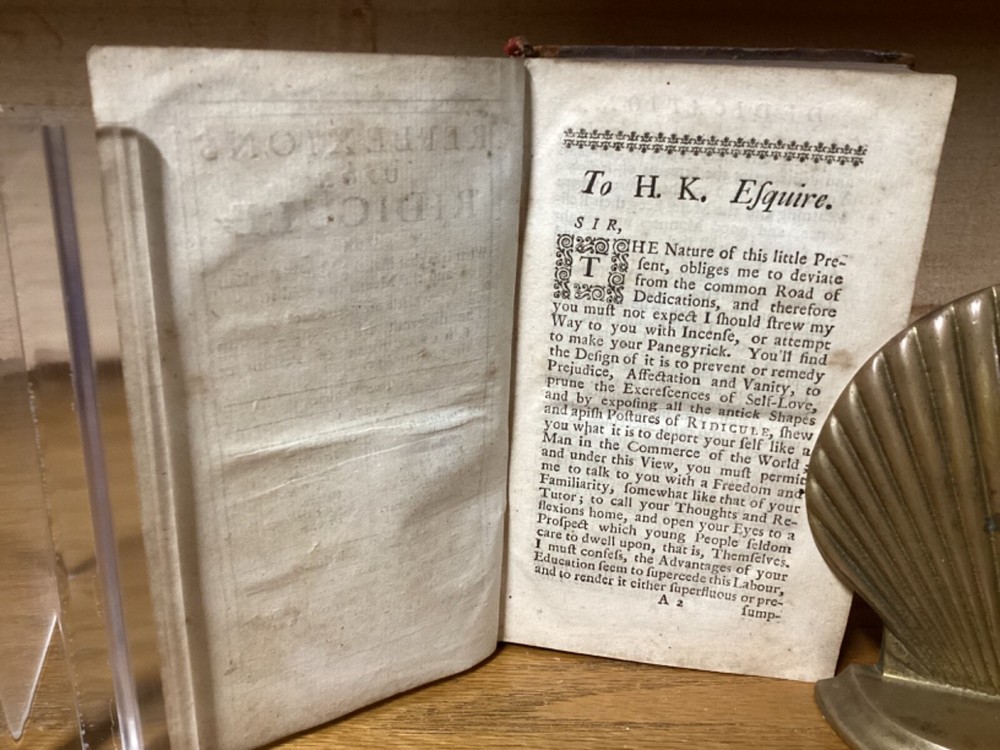 REFLEXIONS
UPON
RIDICULE
To H. K. Eſquire.
SIR,
THE Nature of this little Pre-
ſent, obliges me to deviate
from the common Road of
Dedications, and therefore
you muſt not expect I ſhould ſtrew my
Way to you with Incenſe, or attempt
to make your Panegyrick. You'll find
the Deſign of it is to prevent or remedy
Prejudice, Affectation and Vanity, to
prune the Excreſcences of Self-Love,
and by expoſing all the antick Shapes
and apiſh Poſtures of RIDICULE, ſhew
you what it is to deport your ſelf like a
Man in the Commerce of the World;
and under this View, you muſt permit
me to talk to you with a Freedom and
Familiarity, ſomewhat like that of your
Tutor; to call your Thoughts and Re-
flexions home, and open your Eyes to a
Proſpect which young People ſeldom
care to dwell upon, that is, Themſelves.
I muſt confeſs, the Advantages of your
Education ſeem to ſupercede this Labour,
and to render it either ſuperfluous or pre-
A 2
ſump-